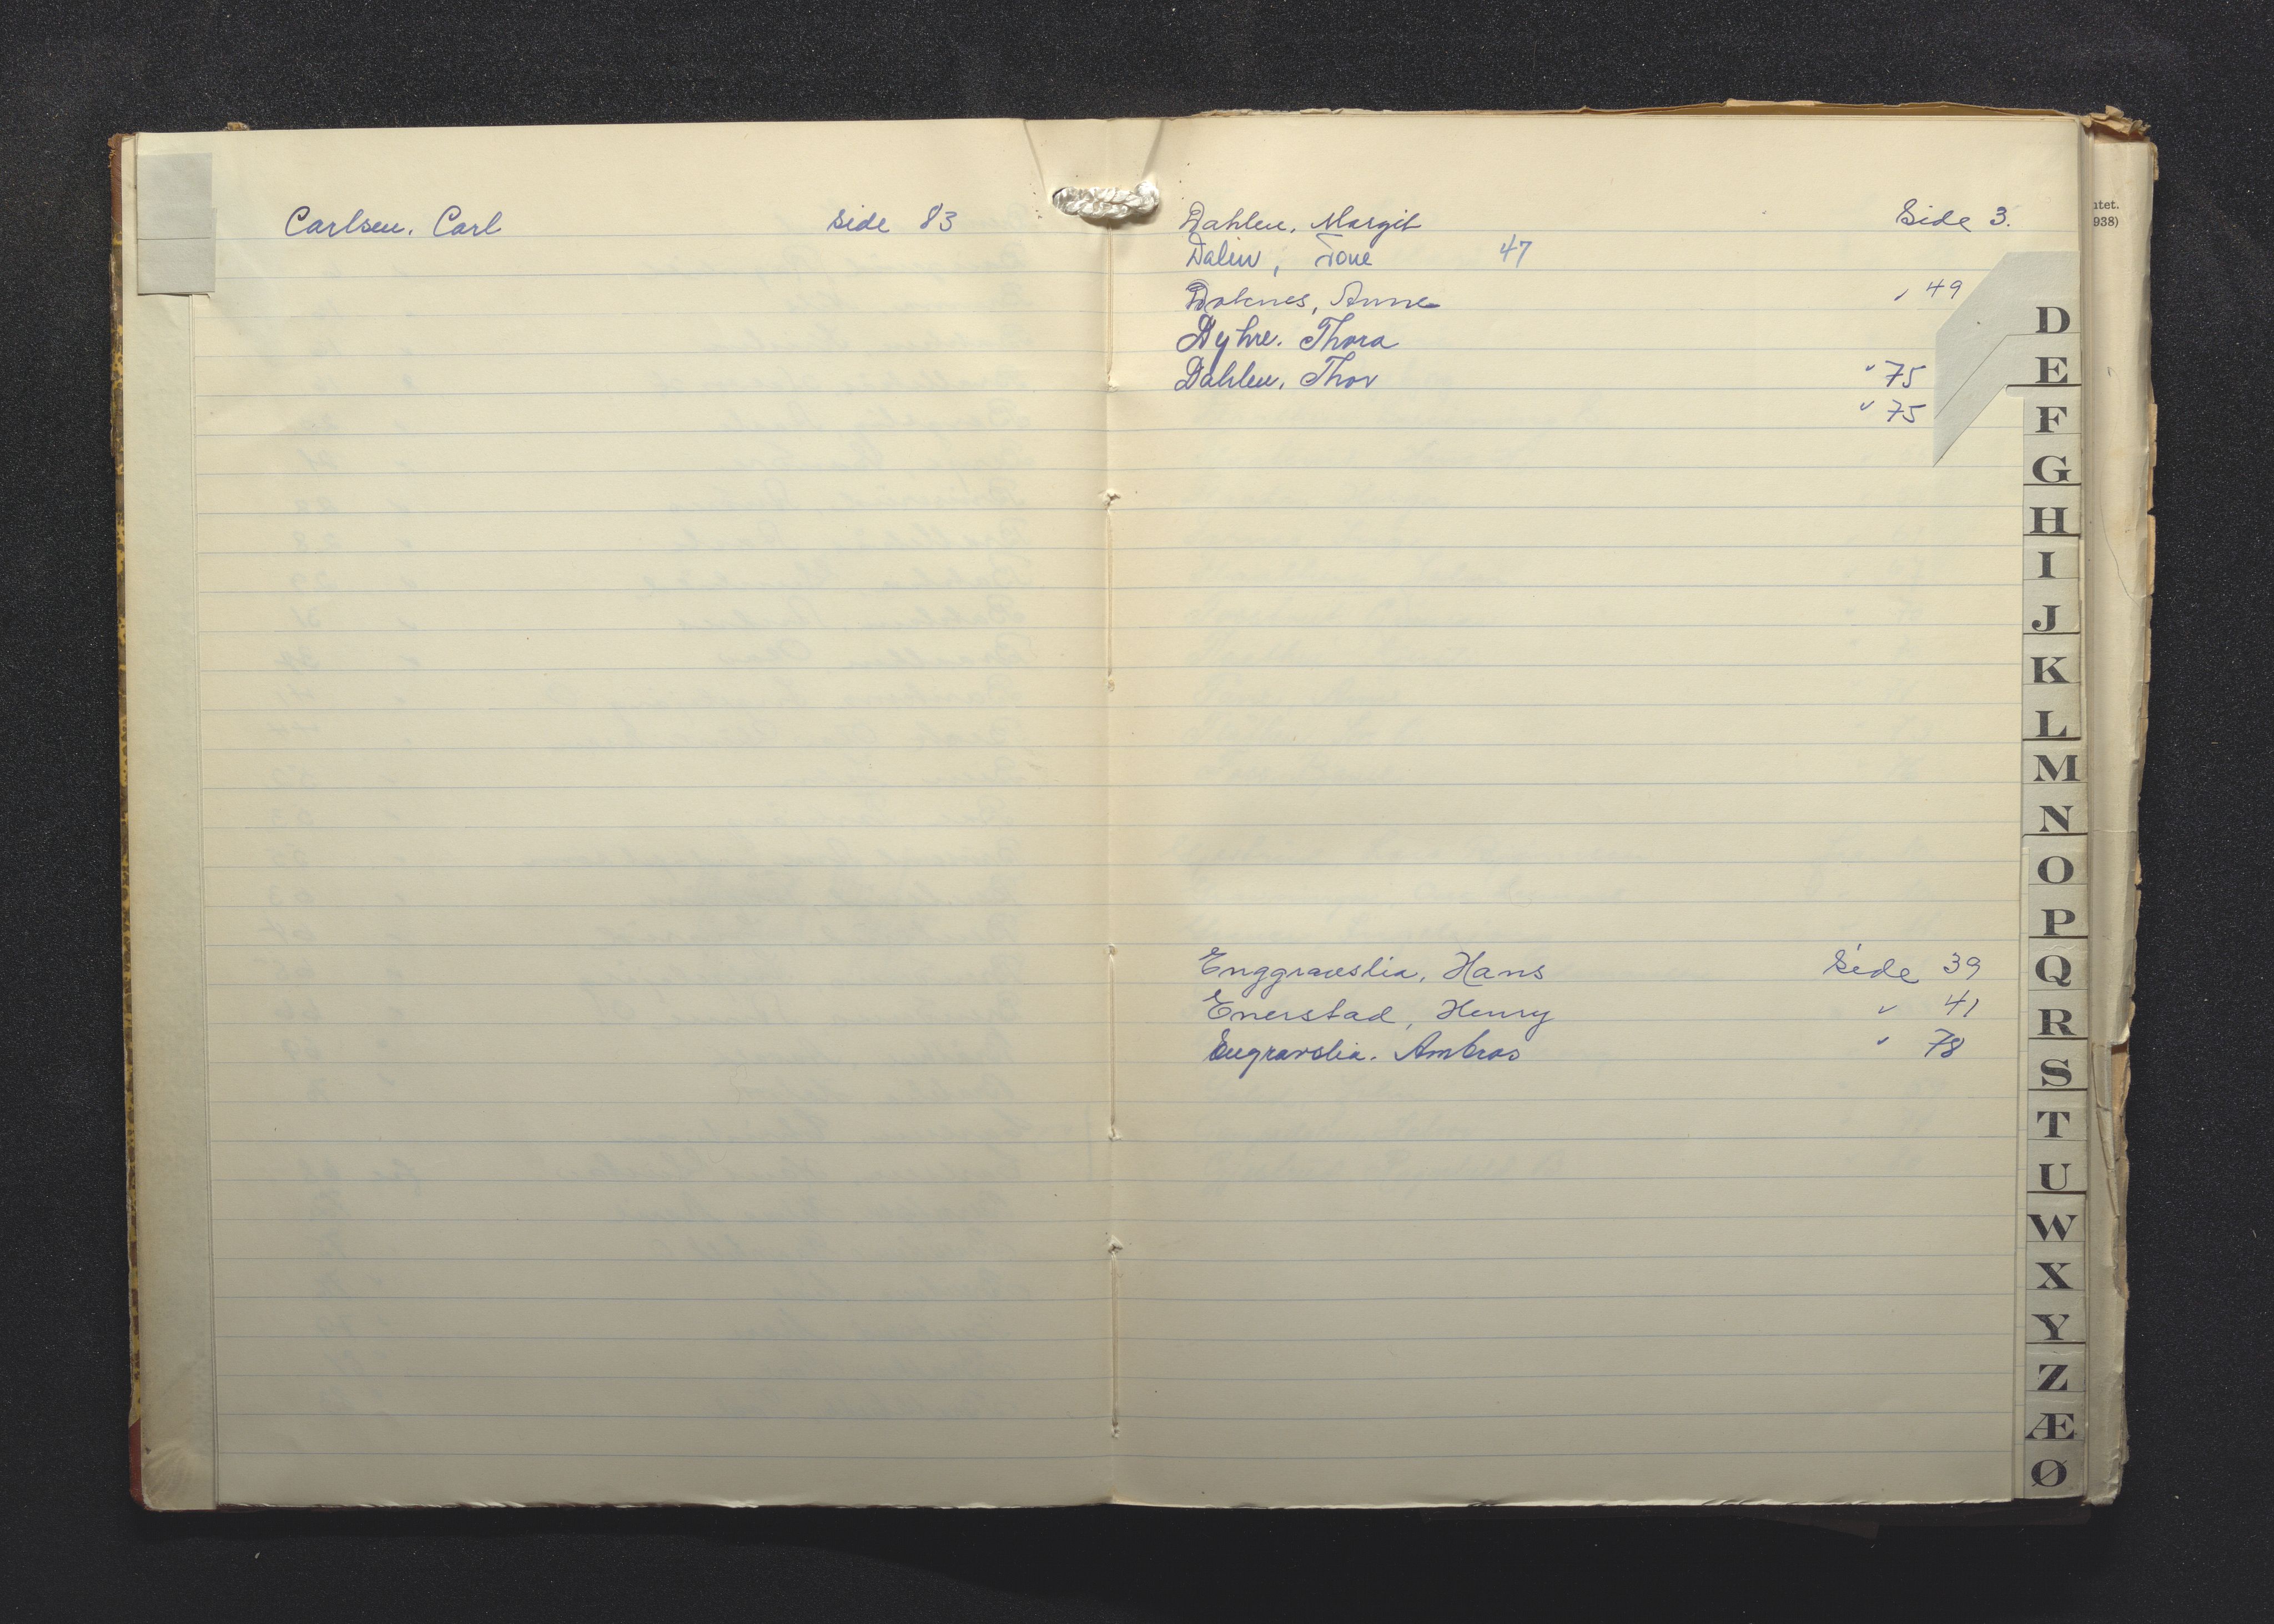 Carlsen, Carl side 83
Dahlen, Margit Side 3.
Dalen, Tone 47
Doknes, Anne " 49
Dyhre. Thora " 75
Dahlen, Thor " 75
Enggravslia, Hans Side 39
Enerstad, Henry " 41
Engravslia. Ambros " 78
ntet.
938)
D
E
F
G
H
I
J
K
L
M
N
O
P
Q
R
S
T
U
W
X
Y
Z
Æ
Ø